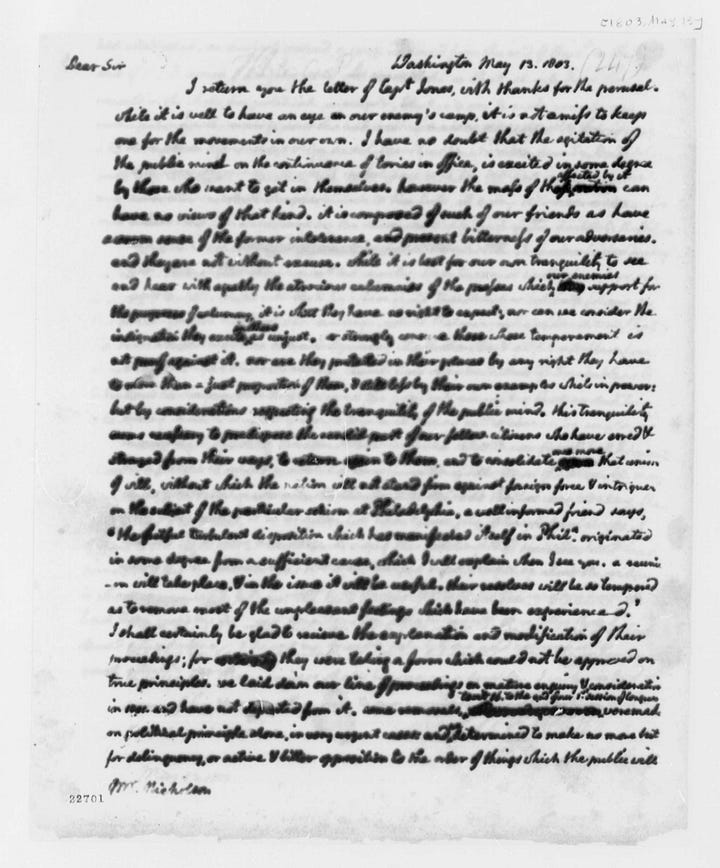 [1803, May 13]
Dear Sir Washington May 13. 1803.
I return you the letter of Capt. Jones, with thanks for the perusal.
while it is well to have an eye on our enemy's camp, it is not amiss to keep
one for the movements in our own. I have no doubt that the agitation of
the public mind on the continuance of tories in office, is excited in some degree
by those who want to get in themselves. however the mass of those affected by it can
have no views of that kind. it is composed of such of our friends as have
a warm sense of the former intolerance, and present bitterness of our adversaries.
and they are not without excuse. while it is best for our own tranquility to see
and hear with apathy the atrocious calumnies of the presses which our enemies support for
the purpose of calumny, it is what they have no right to expect; nor can we consider the
indignation they excite in others as unjust. or strongly censure those whose temperament is
not proof against it. nor are they protected in their places by any right they have
to more than a just proportion of them, & still less by their own examples while in power:
but by considerations respecting the tranquility of the public mind. this tranquility
seems necessary to predispose the candid part of our fellow citizens who have erred &
strayed from their ways, to return again to them, and to consolidate once more that union
of will, without which the nation will not stand firm against foreign force & intrigue.
on the subject of the particular schism at Philadelphia, a well informed friend says,
'the fretful turbulent disposition which has manifested itself in Phila. originated
in some degree from a sufficient cause, which I will explain when I see you. a reunio
-n will take place, & in the issue it will be useful. their resolves will be so tempered
as to remove most of the unpleasant feelings which have been experienced.'
I shall certainly be glad to recieve the explanation and modification of their
proceedings; for they were taking a form which could not be approved on
true principles. we laid down our line of proceedings on mature enquiry & consideration
in 1801. and have not departed from it. some removals, to wit 16. to the end of our 1st session of Congress were made
on political principle alone, in very urgent cases and we determined to make no more but
for delinquency, or active & bitter opposition to the order of things which the public will
Mr. Nicholson
22701